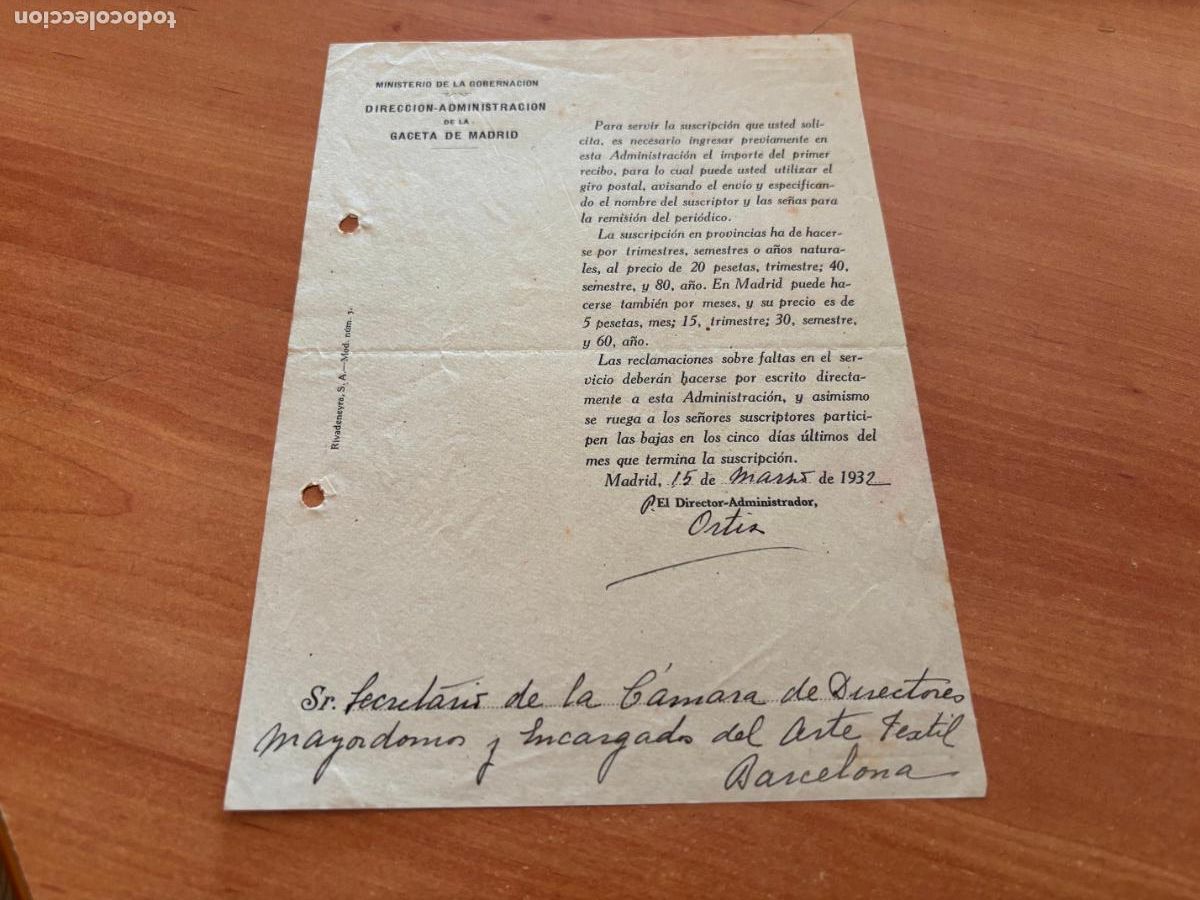 todocoleccion
MINISTERIO DE LA GOBERNACION
DIRECCION-ADMINISTRACION
DE LA
GACETA DE MADRID
Para servir la suscripción que usted soli-
cita, es necesario ingresar previamente en
esta Administración el importe del primer
recibo, para lo cual puede usted utilizar el
giro postal, avisando el envío y especifican-
do el nombre del suscriptor y las señas para
la remisión del periódico.
La suscripción en provincias ha de hacer-
se por trimestres, semestres o años natura-
les, al precio de 20 pesetas, trimestre; 40,
semestre, y 80, año. En Madrid puede ha-
cerse también por meses, y su precio es de
5 pesetas, mes; 15, trimestre; 30, semestre,
y 60, año.
Las reclamaciones sobre faltas en el ser-
vicio deberán hacerse por escrito directa-
mente a esta Administración, y asimismo
se ruega a los señores suscriptores partici-
pen las bajas en los cinco días últimos del
mes que termina la suscripción.
Madrid, 15 de Marzo de 1932
P. El Director-Administrador,
Ortiz
Rivadeneyra, S. A.—Mod. núm. 7.
Sr. Secretario de la Cámara de Directores
Mayordomos y Encargados del Arte Textil
Barcelona